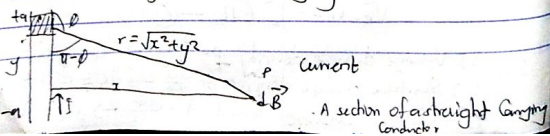 +a φ
r = √x²+y²
y π-φ
P
Current
x
d𝐵⃗
-a ↑I
A section of a straight Carrying
Conductor